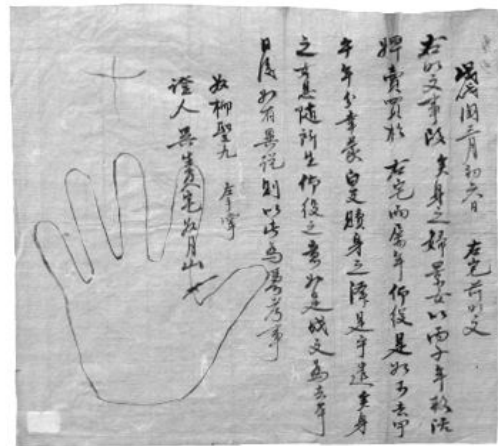 戊戌閏三月初六日 右宅前明文
右明文事段 矣身之婦 景女以丙子年 活
婢賣買於 右宅而屢年仰役是如可去甲
午年分幸蒙 贖身之澤是乎遣矣身
之女息隨所生仰役之意如是成文爲去乎
日後如有異說則以此爲憑考事
奴柳聖九 左掌
證人 吳生員宅奴月山